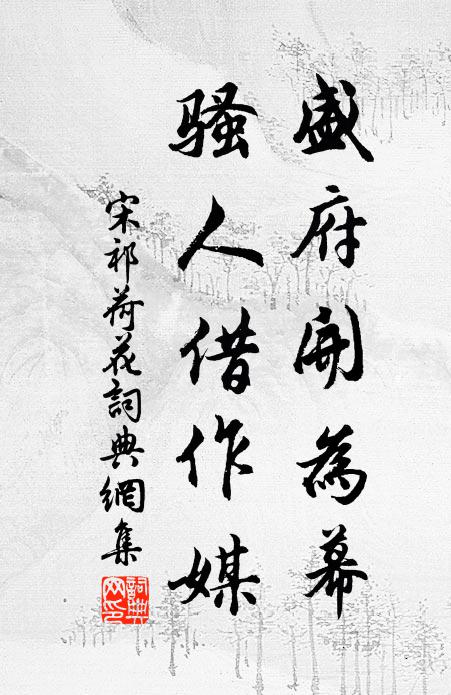 盛府開為幕
騷人借作媒
宋祁荷花詞典網集
詞典